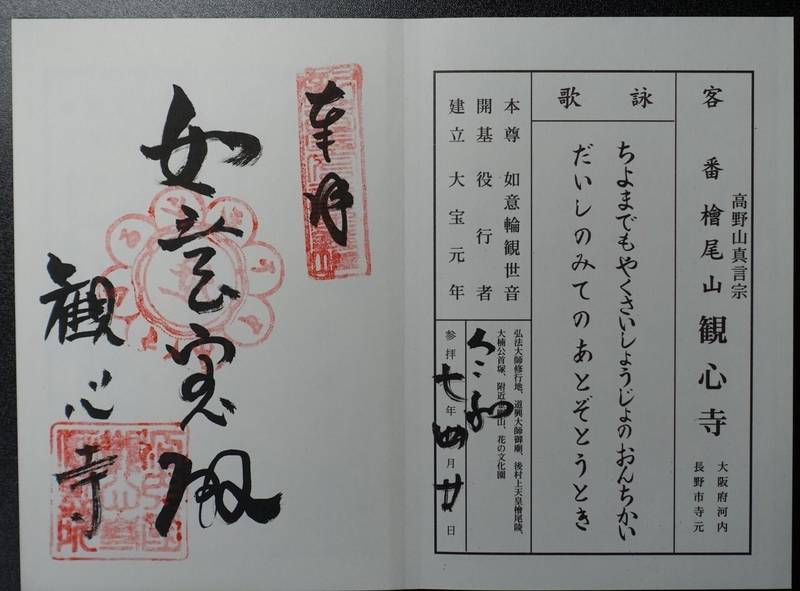 高野山真言宗
客番 檜尾山 観心寺
大阪府河内
長野市寺元
詠歌
ちよまでもやくさいしょうじょのおんちかい
だいしのみてのあとぞとうとき
本尊 如意輪観世音
開基 役行者
建立 大宝元年
弘法大師修行地、道興大師御廟、後村上天皇檜尾陵、
大楠公首塚、附近 山、花の文化園
令和
参拝 七年四月廿日
奉拝
観心寺